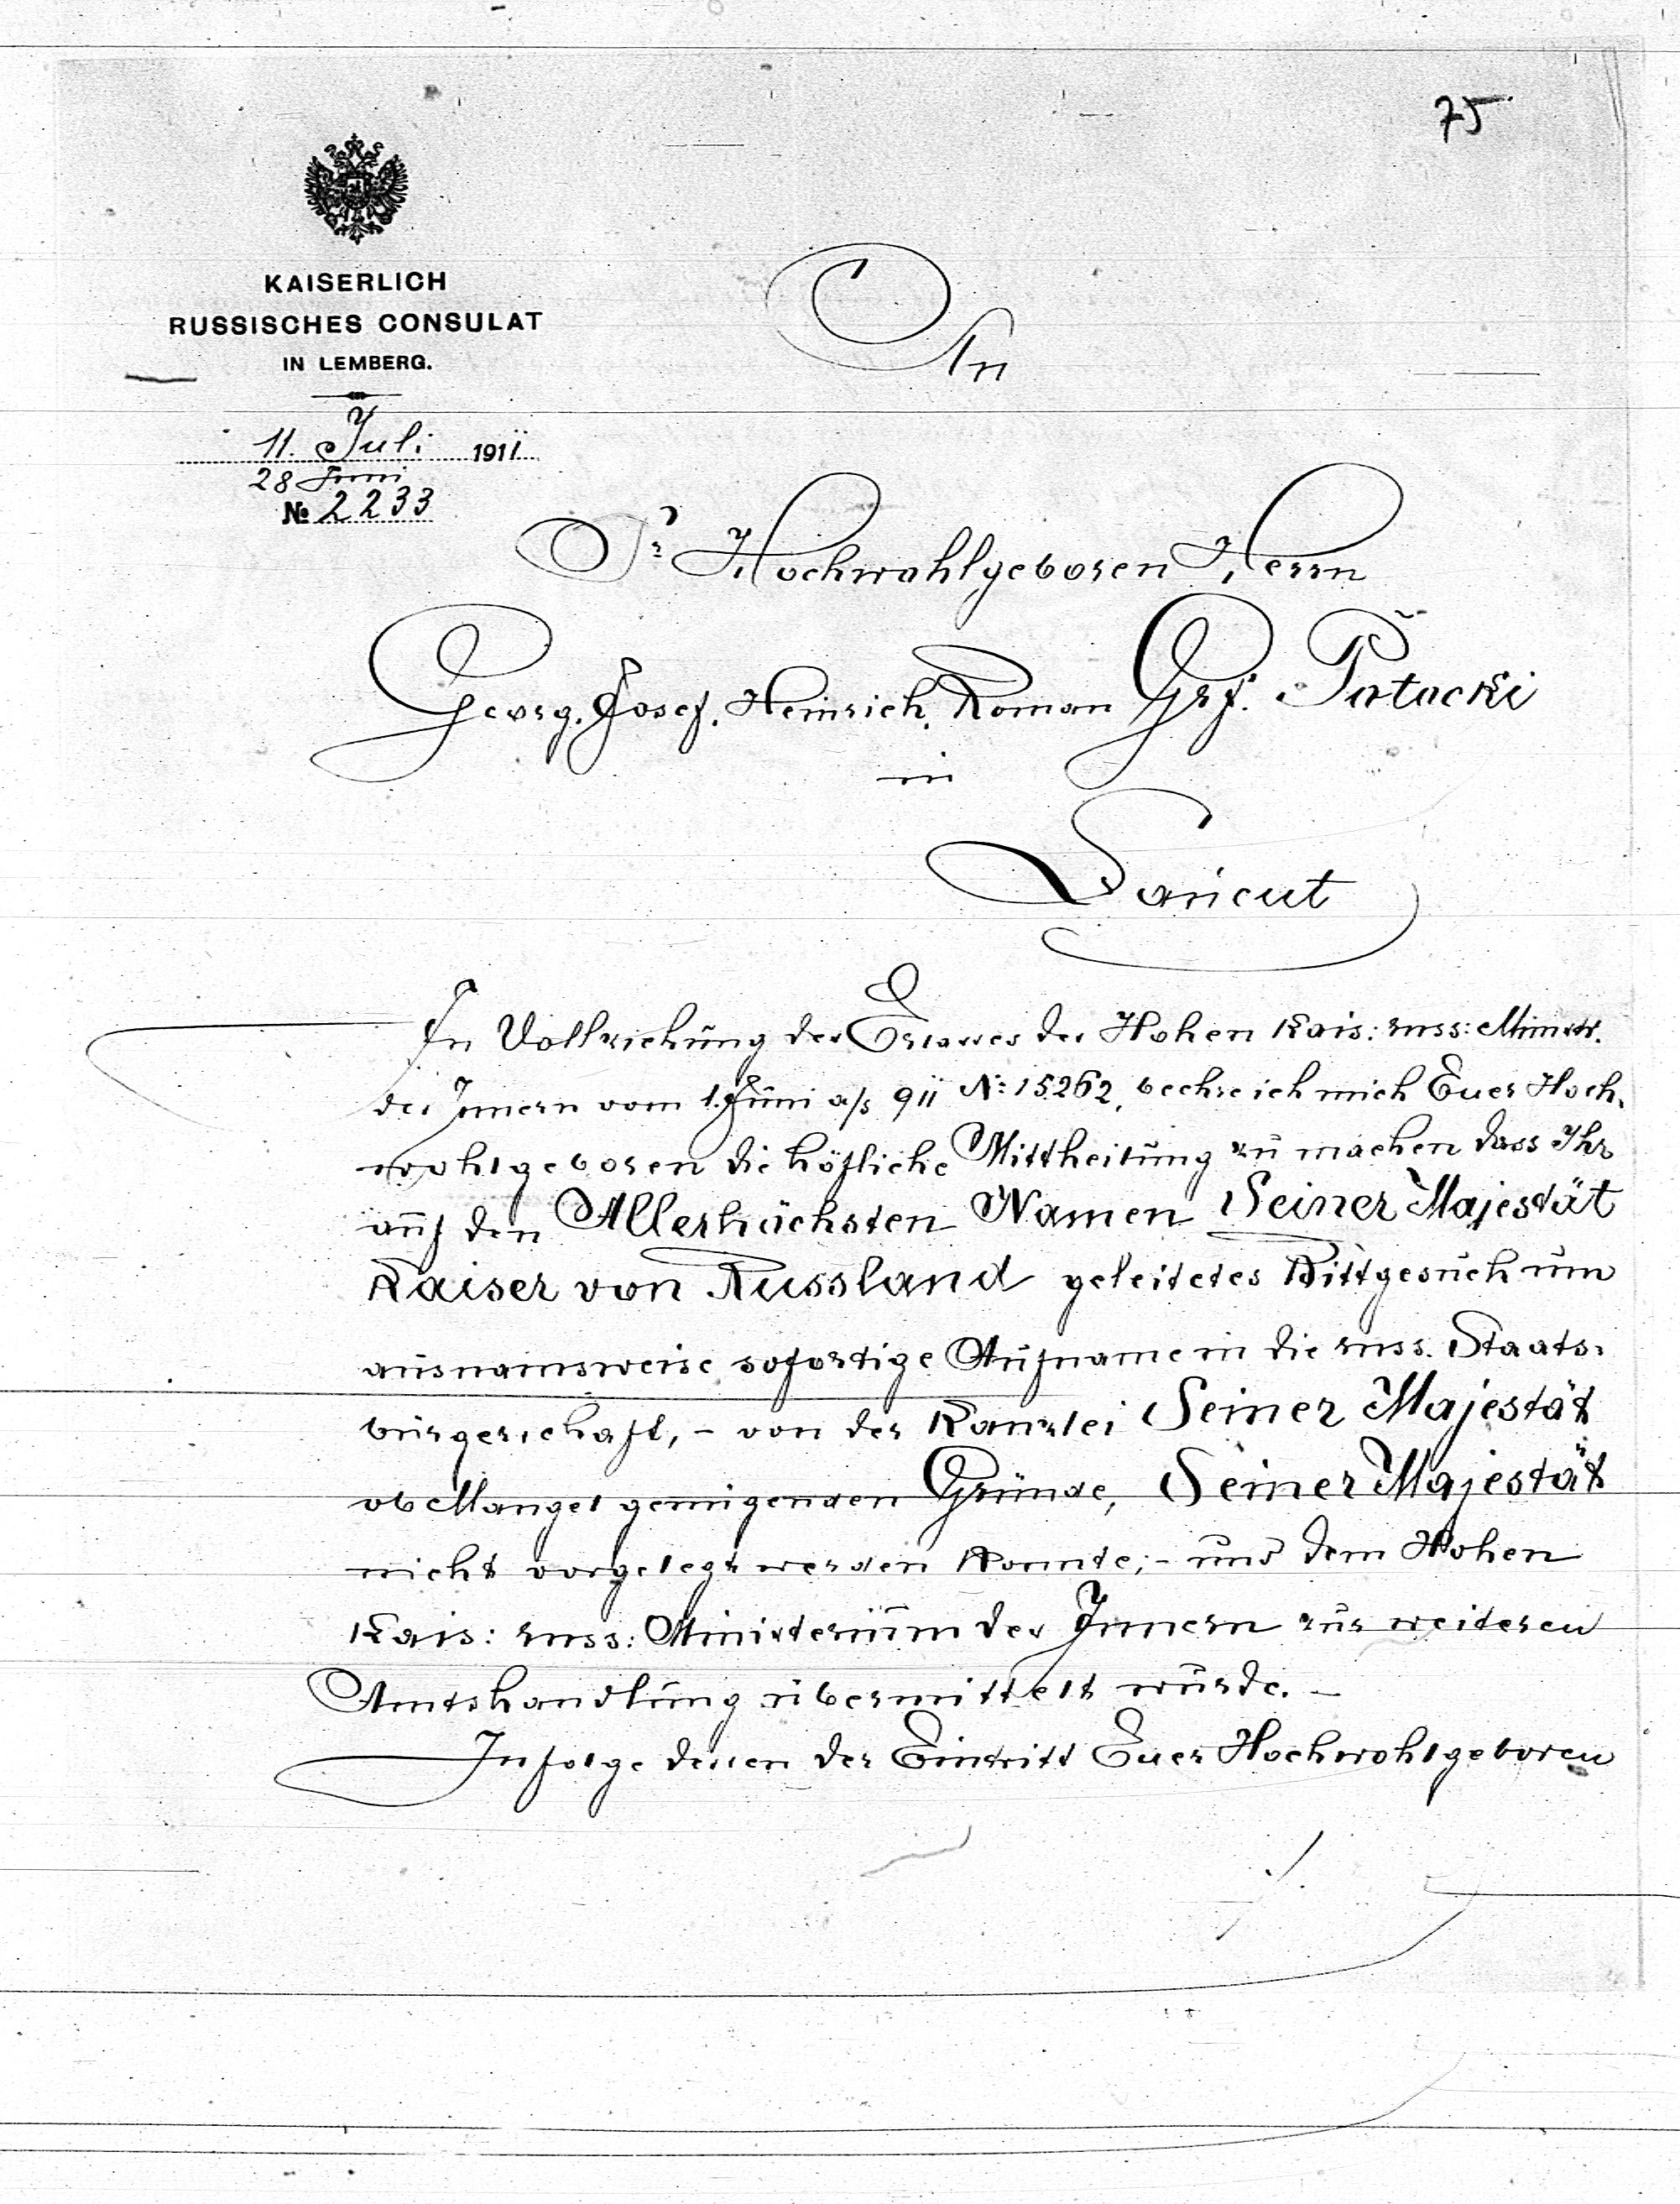 75
KAISERLICH
RUSSISCHES CONSULAT
IN LEMBERG.
11. Juli 1911
28 Juni
№ 2233
An
Sr Hochwohlgeboren Herrn
Georg. Josef. Heinrich. Roman Grf. Potocki
in
Łańcut
In Vollziehung des Erlasses des Hohen Kais: russ: Minist.
des Innern vom 1. Juni a/s 911 № 15262, beehre ich mich Euer Hoch-
wohlgeboren die höfliche Mittheilung zu machen dass Ihr
auf den Allerhöchsten Namen Seiner Majestät
Kaiser von Russland geleitetes Bittgesuch um
ausnamsweise sofortige Aufname in die russ. Staats-
bürgerschaft, – von der Kanzlei Seiner Majestät
ob Mangel genügenden Gründe, Seiner Majestät
nicht vorgelegt werden konnte; – und dem Hohen
Kais: russ: Ministerium des Innern zur weiteren
Amtshandlung übermittelt wurde. –
Infolge dessen der Eintritt Euer Hochwohlgeboren
./.